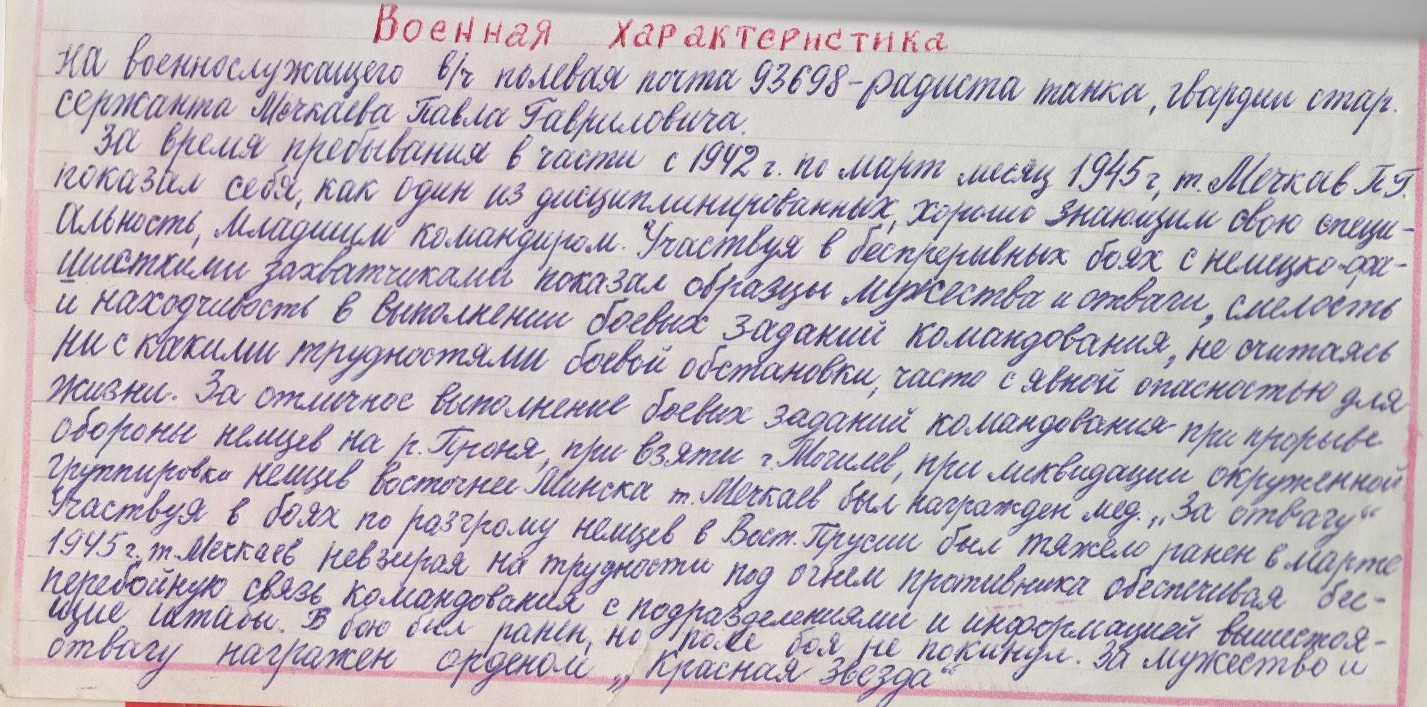 Военная характеристика
на военнослужащего в/ч полевая почта 93698-радиста танка, гвардии стар.
сержанта Мечкаева Павла Гавриловича.
За время пребывания в части с 1942 г. по март месяц 1945 г, т. Мечкаев П.Г.
показал себя, как один из дисциплинированных, хорошо знающим свою специ-
альность, младшим командиром. Участвуя в беспрерывных боях с немецко-фа-
шисткими захватчиками показал образцы мужества и отваги, смелость
и находчивость в выполнении боевых заданий командования, не считаясь
ни с какими трудностями боевой обстановки, часто с явной опасностью для
жизни. За отличное выполнение боевых заданий командования при прорыве
обороны немцев на р. Проня, при взяти г. Могилев, при ликвидации окруженной
группировки немцев восточнее Минска т. Мечкаев был награжден мед. „За отвагу“
Участвуя в боях по разгрому немцев в Вост. Прусии был тяжело ранен в марте
1945 г. т. Мечкаев невзирая на трудности под огнем противника обеспечивая бес-
перебойную связь командования с подразделениями и информацией вышестоя-
щие штабы. В бою был ранен, но поле боя не покинул. За мужество и
отвагу награжен орденом „Красная звезда“